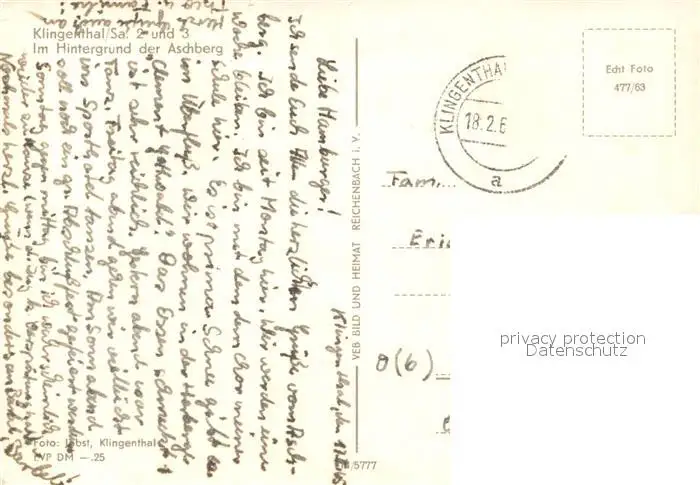 Klingenthal/Sa. 2 und 3
Im Hintergrund der Aschberg
Klingenthal, den
Liebe Hamburger!
Ich sende Euch Allen die herzlichsten Grüße vom Asch-
berg. Ich bin seit Montag hier. Wir werden eine
Woche bleiben. Ich bin mit dem Chor meiner
Schule hier. Es ist prima. Schnee gibt es
im Überfluß. Wir wohnen in der Herberge
"Clement Gottwald". Das Essen schmeckt u.
ist sehr reichlich. Gestern abend war
Tanz. Freitag abend gehen wir vielleicht
ins Sporthotel tanzen. Am Sonnabend
soll noch ein gr. Abschlußfest gefeiert werden
Sonntag gegen mittag bin ich wahrscheinlich
wieder zu Hause
Nochmals herzl. Grüße besonders an
Herzl. Grüße auch an
u. Familie!
Foto: Jobst, Klingenthal
EVP DM —.25
5777
VEB BILD UND HEIMAT REICHENBACH i. V.
KLINGENTHAL
18.2.6
a
Echt Foto
477/63
Fam.
Eri
O(6)
privacy protection
Datenschutz